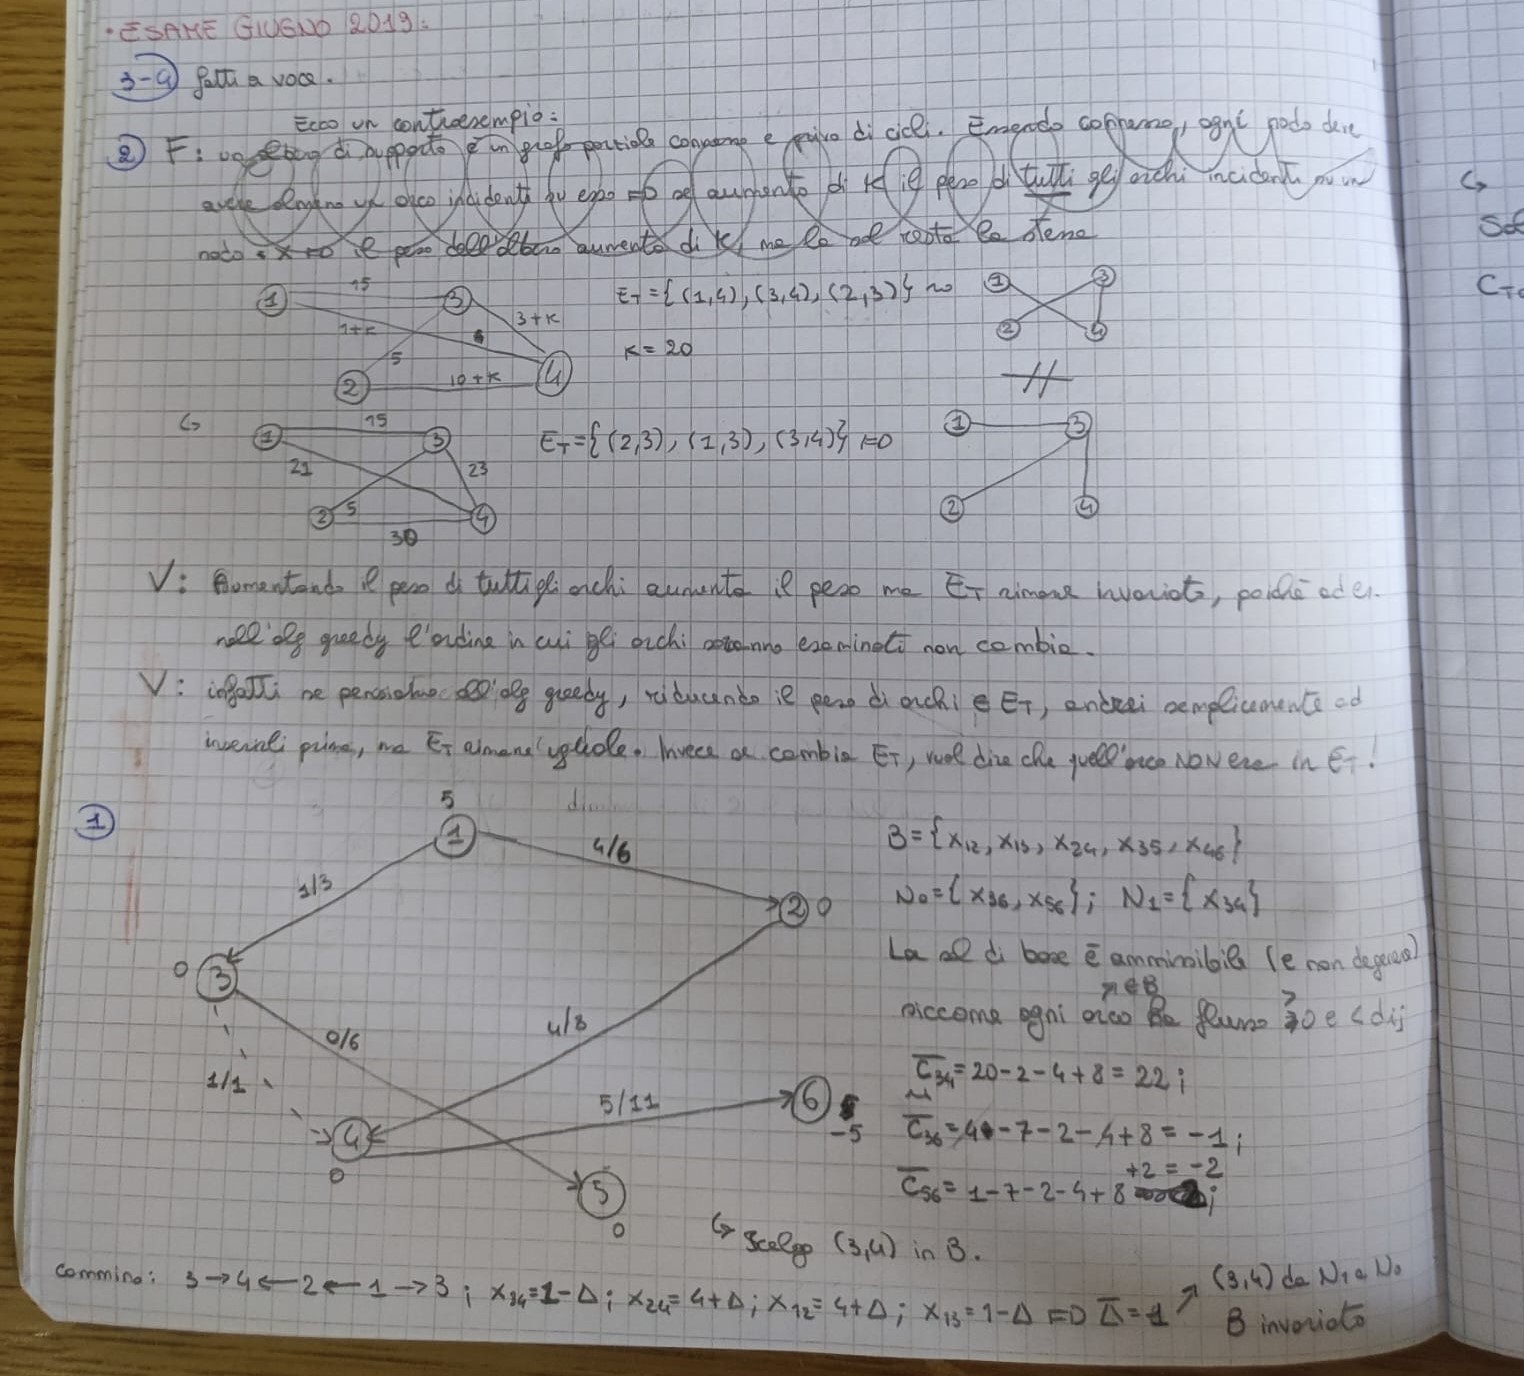 · ESAME GIUGNO 2019:
3-4) fatti a voce.
Ecco un controesempio:
2) F: un albero di supporto è un grafo parziale connesso e privo di cicli. Essendo connesso, ogni nodo deve
avere almeno un arco incidente su esso => se aumento di K il peso di tutti gli archi incidenti su un
nodo => il peso dell'albero aumenta di K, ma la sol resta la stessa
1 15 3 3+K 1+K 6 5 2 10+K 4
E_T={(1,4),(3,4),(2,3)} ~> 1 3 2 4
K=20
↳ 1 15 3 21 23 2 5 4 30
E_T={(2,3),(1,3),(3,4)} => 1 3 2 4
V: Aumentando il peso di tutti gli archi aumenta il peso ma E_T rimane invariato, poiché ad es.
nell'alg greedy l'ordine in cui gli archi saranno esaminati non cambia.
V: infatti se pensiamo all'alg greedy, riducendo il peso di archi ∈ E_T, andrei semplicemente ad
inserirli prima, ma E_T rimane uguale. Invece se cambia E_T, vuol dire che quell'arco NON era in E_T!
1)
5
1 4/6 2 0
1/3
0 3
0/6 4/8
1/1
4 0
5/11 6 -5
5 0
B={x12, x13, x24, x35, x46}
N0={x36, x56}; N1={x34}
La sol di base è ammissibile (e non degenere)
siccome ogni arco ∈B ha flusso ≥0 e < dij
C̄34=20-2-4+8=22;
C̄36=4-7-2-4+8=-1;
C̄56=1-7-2-4+8+2=-2;
↳ Scelgo (3,4) in B.
cammino: 3→4←2←1→3; x34=1-Δ; x24=4+Δ; x12=4+Δ; x13=1-Δ => Δ̄=1 ↗ (3,4) da N1 a N0
B invariato
↳